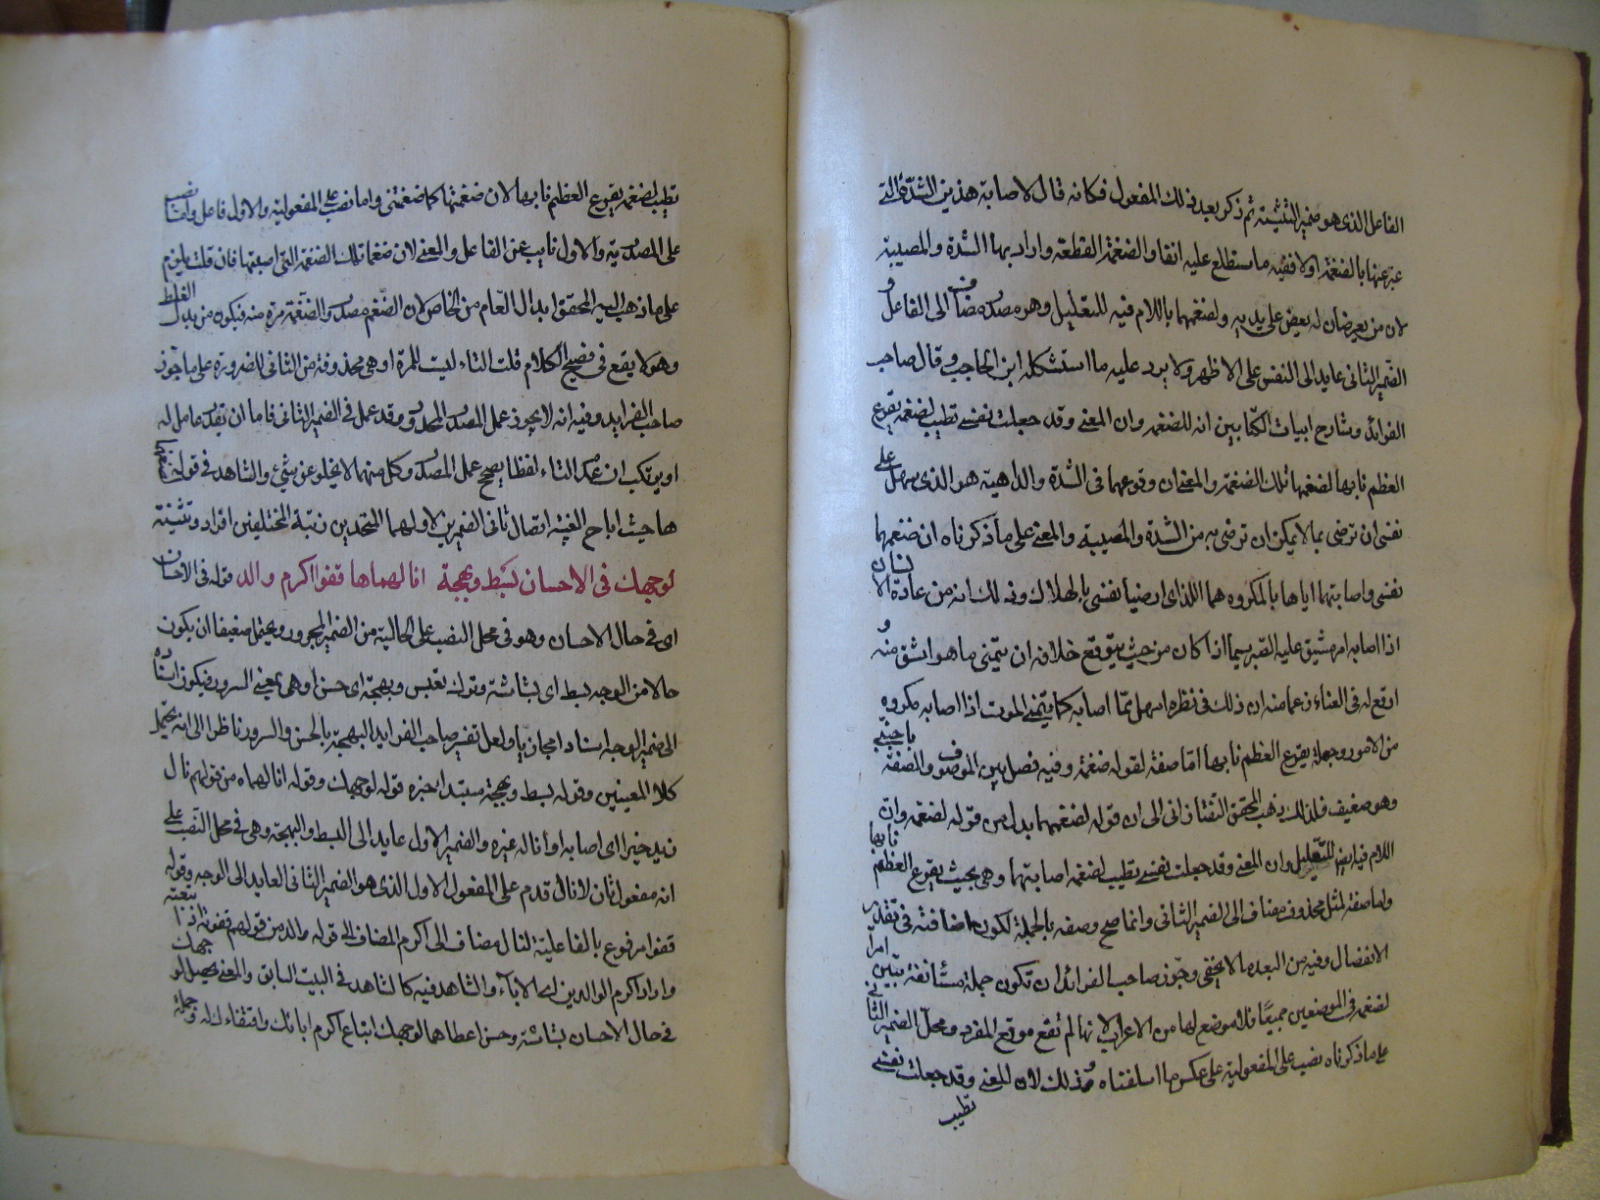 الفاعل الذى هو ضمير التثنية ثم ذكر بعد ذلك المفعول فكانه قال لاصابة هذين الشدتى التى
عبر عنها بالضغمة اولا ففيه ما ستطلع عليه انفا والضغمة القطعة واراد بها الشدة والمصيبة
لان من يعرضان له يعض على يديه ولضغمهما باللام فيه للتعليل وهو مصدر مضاف الى الفاعل و
الضمير الثانى عايد الى النفس على الاظهر ولا يرد عليه ما استشكله ابن الحاجب وقال صاحب
الفرائد وشارح ابيات الكتابين انه للضغمه وان المعنى وقد جعلت نفسى تطيب لضغمه يقرع
العظم نابها لضغمها تلك الضغمة والمعنى ان وقوعهما فى الشدة والداهية هو الذى سهل على
نفسى ان ترضى بما لا يمكن ان ترضى به من الشدة والمصيبة والمعنى على ما ذكرناه ان ضغمهما
نفسى واصابتهما اياها بالمكروه هما اللذان ارضيا نفسى بالهلاك وذلك انه من عادة الانسان
اذا اصابه امر مشق عليه الصبر سيما اذا كان من حيث يتوقع خلافه ان يتمنى ما هو اشق منه و
اوقع له فى العناء زعما منه ان ذلك فى نظره اسهل مما اصابه كما يتمنى الموت اذا اصابه مكروه
من الامور وجملة يقرع العظم نابها اما صفة لقوله ضغمة وفيه فصل بين الموصوف والصفة باجنبى
وهو ضعيف فلذلك ذهب المحقق التفتازانى الى ان قوله لضغمهما بدل من قوله لضغمه وان
اللام فيه ايضا للتعليل وان المعنى وقد جعلت نفسى تطيب لضغمه اصابتهما وهى بحيث يقرع العظم نابها
واما صفة لمثل محذوف مضاف الى الضمير الثانى وانما صح وصفه بالجملة لكون اضافته فى تقدير
الانفصال وفيه من البعد ما لا يخفى وجوز صاحب الفرائد ان تكون جملة مستانفة تبين امرا
لضغمه فى الموضعين مبينا فلا موضع لها من الاعراب لانها لم تقع موقع المفرد ومحل الضمير الثانى
على ما ذكرناه نصب على المفعولية على عكس ما اسلفناه وذلك لان المعنى وقد جعلت نفسى
تطيب
تطيب لضغمه يقرع العظم نابها لان ضغمتها كما ضغمتنى واما نصب على المفعولية والاول فاعل واما نصب
على المصدرية والاول نايب عن الفاعل والمعنى لان ضغما تلك الضغمة التى اصبتها فان قلت يلزم
على ما ذهب اليه المحقق ابدال العام من الخاص لان الضغم مصدر والضغمة مرة منه فيكون من بدل الغلط
وهو لا يقع فى فصيح الكلام قلت التاء ليست للمرة او هى محذوفة من الثانى للضرورة على ما جوز
صاحب الفرايد وفيه انه لا يجوز عمل المصدر المحدود وقد عمل فى الضمير الثانى فاما ان يقدر عامل له
او يرتكب ان عدم التاء لفظا يصحح عمل المصدر وكل منهما لا يخلو عن شئ والشاهد فى قوله لضغمهما
ها حيث اباح الغيبه اتصال ثانى الضميرين لاولهما المتحدين رتبة المختلفين افراد وتثنية
لوجهك فى الاحسان بسط وبهجة انالهماها قفوا اكرم والد قوله فى الاحسان
اى فى حال الاحسان وهو فى محل النصب على الحالية من الضمير المجرور ويحتمل ضعيفا ان يكون
حالا من الوجه بسط اى بشاشة وترك تعبس وبهجة اى حسن او هى بمعنى السرور فيكون اسناده
الى ضمير الوجه اسناد امجازيا ولعل تفسير صاحب الفرايد البهجة بالحسن والسرور ناظر الى انه يحتمل
كلا المعنيين وقوله بسط وبهجة مبتدا خبره قوله لوجهك وقوله انالهماه من قولهم نال
زيد خيرا اى اصابه او أناله غيره والضمير الاول عايد الى البسط والبهجة وهى فى محل النصب على
انه مفعول ثان لانال قدم على المفعول الاول الذى هو الضمير الثانى العايد الى الوجه وقوله
قفوا مرفوع بالفاعلية لنال مضاف الى اكرم المضاف الى قوله والد من قولهم قفوته اذا تبعته
واراد اكرم الوالدين اى الآباء والشاهد فيه كالشاهد فى البيت السابق والمعنى يحصل لوجهك
فى حال الاحسان بشاشة وحسن اعطاهما لوجهك اتباع اكرم ابائك واقتفاءك له وجملة